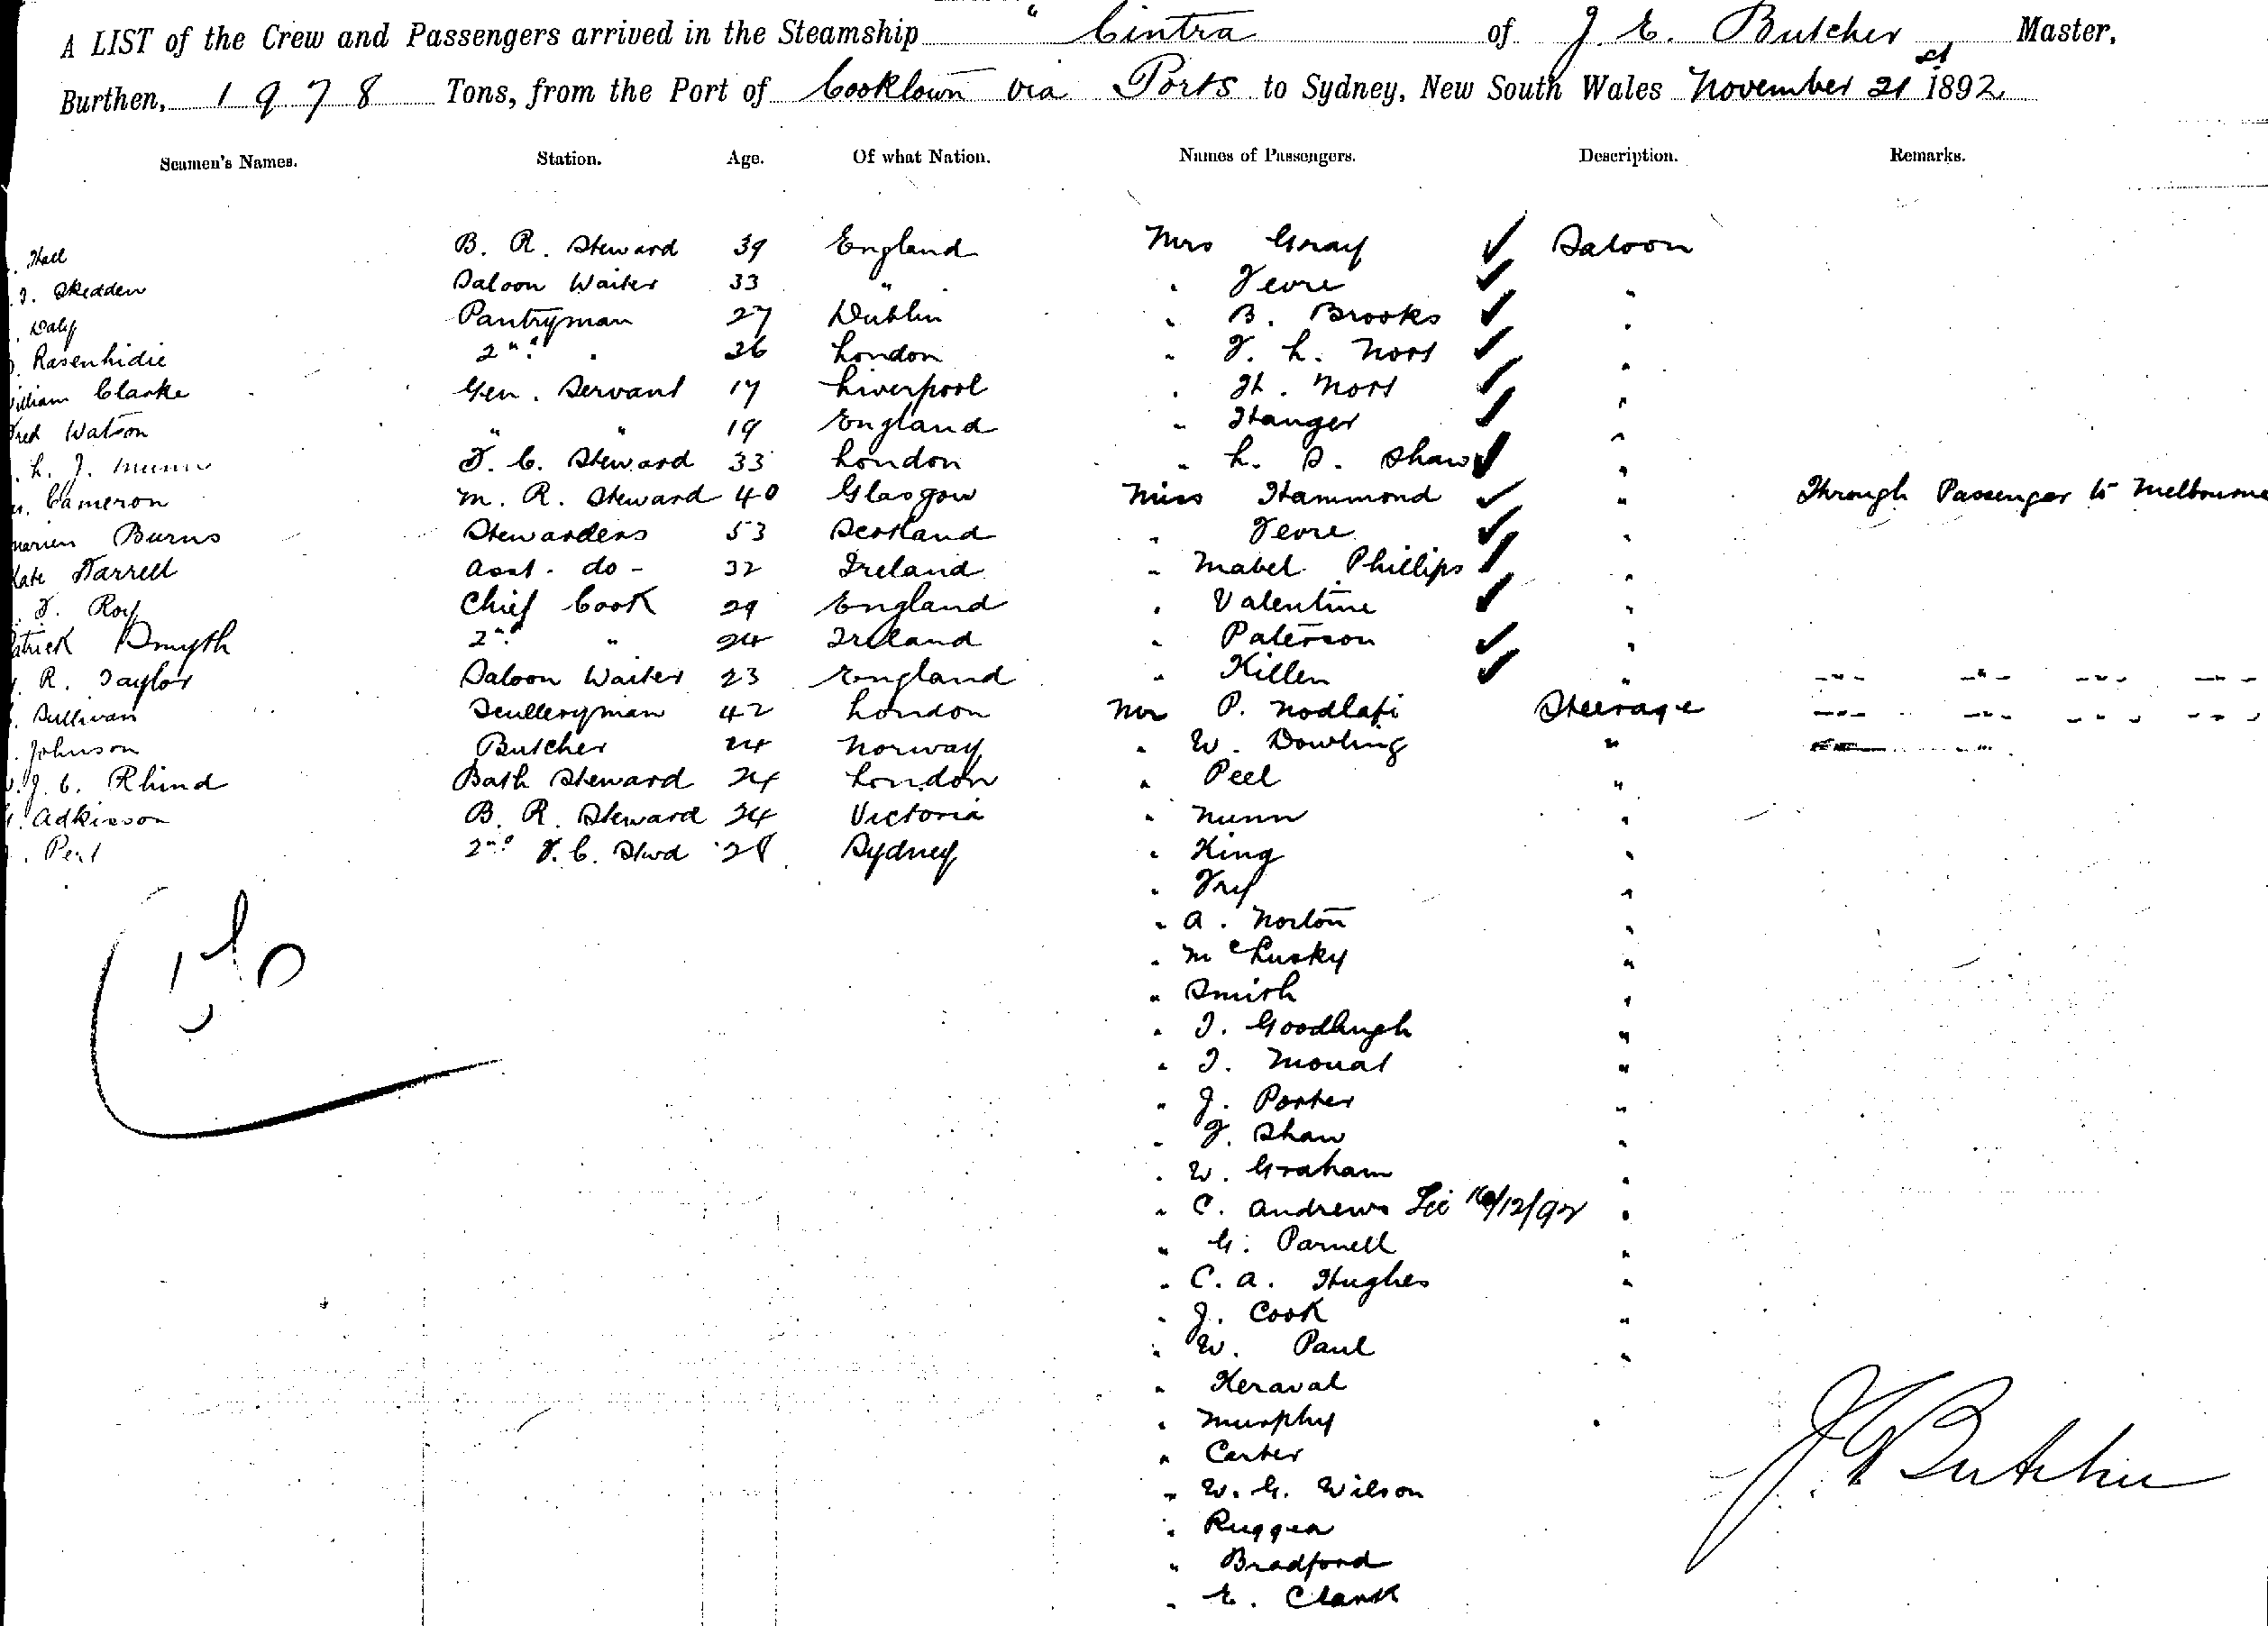 A LIST of the Crew and Passengers arrived in the Steamship "Cintra of J. E. Butcher Master,
Burthen, 1978 Tons, from the Port of Cooktown via Ports to Sydney, New South Wales November 21st 1892
Seamen's Names. Station. Age. Of what Nation. Names of Passengers. Description. Remarks.
. Hall B. R. Steward 39 England Mrs Gray ✓ Saloon
. J. Skedden Saloon Waiter 33 " " Fevre ✓ "
. Daly Pantryman 27 Dublin " B. Brooks ✓ "
Rasenhidie 2nd " 36 London " F. L. Nott ✓ "
illiam Clarke Gen. Servant 17 Liverpool " H. Nott ✓ "
Fred Watson " " 19 England " Hanger ✓ "
. L. J. Munn F. C. Steward 33 London " L. S. Shaw ✓ "
Cameron M. R. Steward 40 Glasgow Miss Hammond ✓ " Through Passenger to Melbourne
Marien Burns Stewardess 53 Scotland " Fevre ✓ "
Kate Farrell Asst. do - 32 Ireland " Mabel Phillips ✓ "
. F. Roy Chief Cook 29 England " Valentine ✓ "
atrick Smyth 2nd " 24 Ireland " Paterson ✓ "
. R. Taylor Saloon Waiter 23 England " Killen ✓ " -"- -"- -"- -"-
. Sullivan Sculleryman 42 London Mr P. Nodlafi Steerage -"- -"- -"- -"-
. Johnson Butcher 24 Norway " W. Dowling "
. J. C. Rhind Bath Steward 24 London " Peel "
. Adkisson B. R. Steward 24 Victoria " Nunn "
. Pert 2nd F. C. Stwd 28 Sydney " King "
" Fry "
" A. Norton "
" McLusky "
" Smith "
" J. Goodhugh "
" J. Mouat "
" J. Porter "
" F. Shaw "
" W. Graham "
" C. Andrews 16/12/92 "
" G. Parnell "
" C. A. Hughes "
" J. Cook "
" W. Paul "
" Keraval
" Murphy "
" Carter
" W. G. Wilson
" Ruggea
" Bradford
" E. Clark
J. E. Butcher